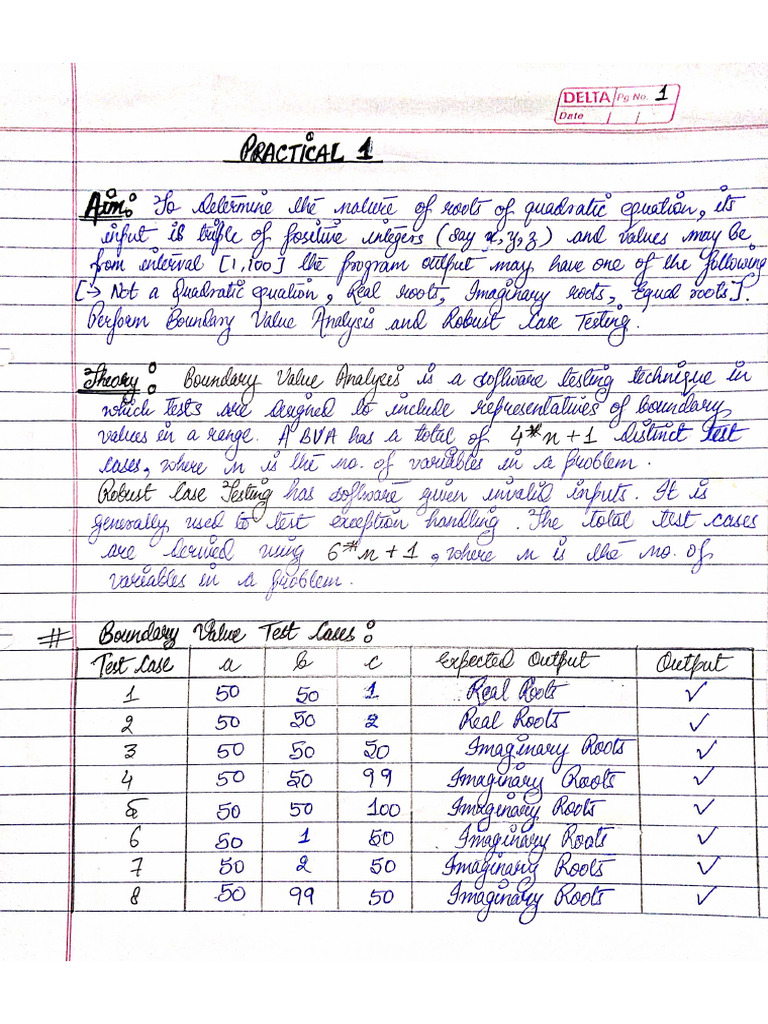 DELTA Pg No. 1
Date / /
PRACTICAL 1
Aim: To Determine the nature of roots of quadratic equation, its
input is triple of positive integers (say x, y, z) and values may be
from interval [1,100] the program output may have one of the following
[→ Not a Quadratic equation, Real roots, Imaginary roots, Equal roots].
Perform Boundary Value Analysis and Robust Case Testing.
Theory: Boundary Value Analysis is a software testing technique in
which tests are designed to include representatives of boundary
values in a range. A BVA has a total of 4*n+1 Distinct Test
cases, where n is the no. of variables in a problem.
Robust Case Testing has software given invalid inputs. It is
generally used to test exception handling. The total test cases
are derived using 6*n+1, where n is the no. of
variables in a problem.
# Boundary Value Test Cases:
Test Case a b c Expected Output Output
1 50 50 1 Real Roots ✓
2 50 50 2 Real Roots ✓
3 50 50 50 Imaginary Roots ✓
4 50 50 99 Imaginary Roots ✓
5 50 50 100 Imaginary Roots ✓
6 50 1 50 Imaginary Roots ✓
7 50 2 50 Imaginary Roots ✓
8 50 99 50 Imaginary Roots ✓